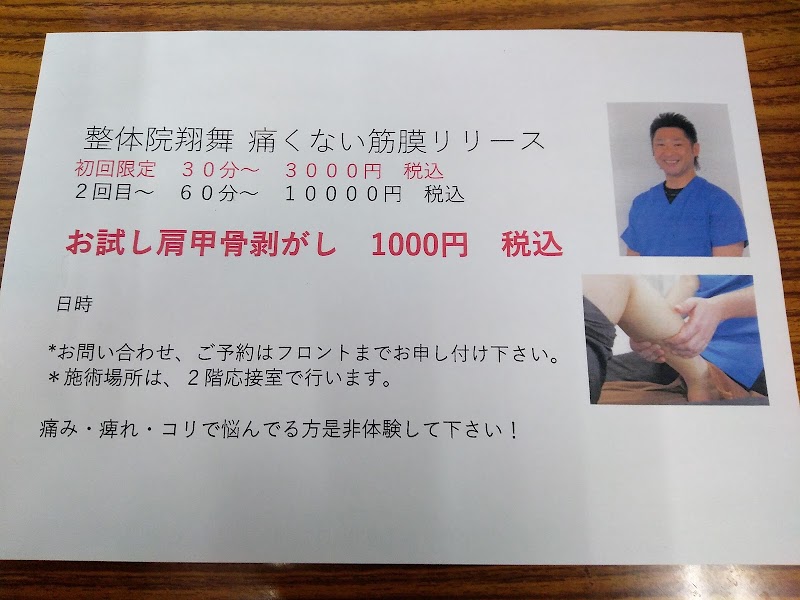 整体院翔舞 痛くない筋膜リリース
初回限定　３０分～　３０００円　税込
２回目～　６０分～　１００００円　税込
お試し肩甲骨剥がし　1000円　税込
日時
*お問い合わせ、ご予約はフロントまでお申し付け下さい。
＊施術場所は、２階応接室で行います。
痛み・痺れ・コリで悩んでる方是非体験して下さい！